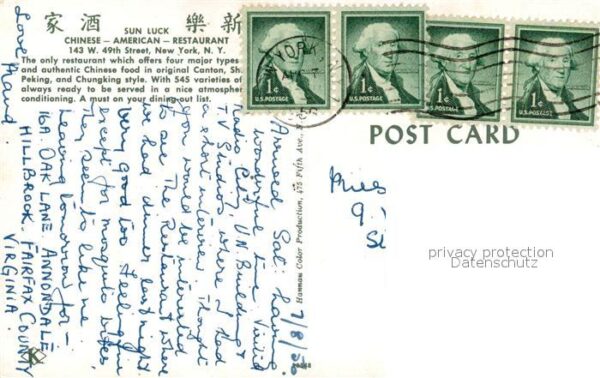 家 酒 樂 新
SUN LUCK
CHINESE – AMERICAN – RESTAURANT
143 W. 49th Street, New York, N. Y.
The only restaurant which offers four major types
and authentic Chinese food in original Canton, Sh
Peking, and Chungking style. With 545 varieties of
always ready to be served in a nice atmospher
conditioning. A must on your dining-out list.
YORK
1¢
U.S. POSTAGE
1¢
U.S. POSTAGE
1¢
U.S. POSTAGE
1¢
U.S. POSTAGE
POST CARD
Hannau Color Production, 475 Fifth Ave., N.
7/8/56
Arrived Sat. having
wonderful time. Visited
Radio City, UN Building &
T.V Studios, where I had
a short interview. Thought
you would be interested
to see The Restaurant where
we had dinner last night
Very good too. Feeling fine
except for mosquito bites.
They seem to like me.
Leaving tomorrow for –
16A. OAK LANE. ANNONDALE
HILLBROOK. FAIRFAX COUNTY
VIRGINIA.
Love Maud.
K
privacy protection
Datenschutz